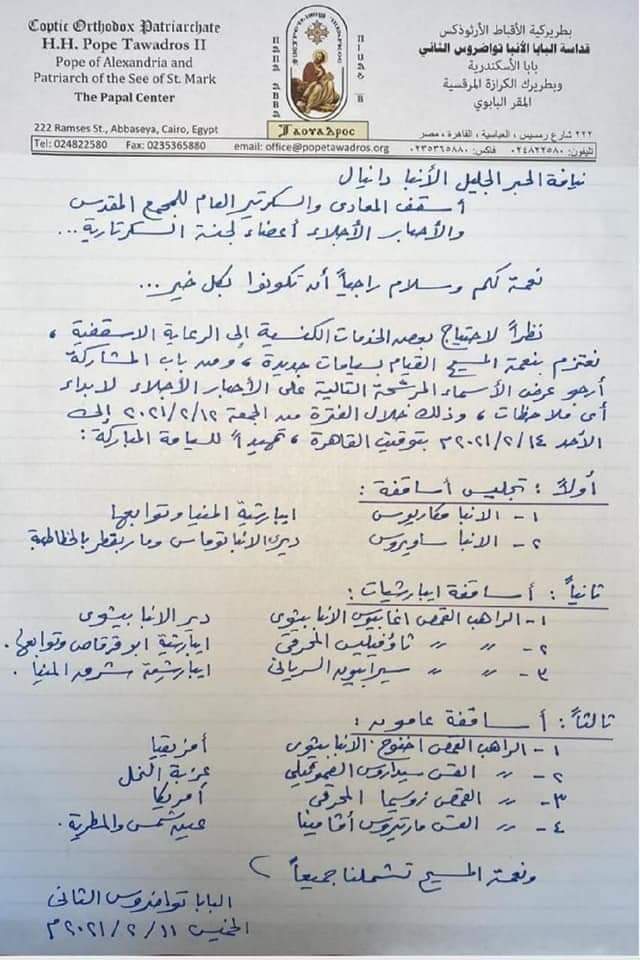 Coptic Orthodox Patriarchate
H.H. Pope Tawadros II
Pope of Alexandria and
Patriarch of the See of St. Mark
The Papal Center
222 Ramses St., Abbaseya, Cairo, Egypt
Tel: 024822580 Fax: 0235365880 email: office@popetawadros.org
بطريركية الأقباط الأرثوذكس
قداسة البابا الأنبا تواضروس الثاني
بابا الأسكندرية
وبطريرك الكرازة المرقسية
المقر البابوي
٢٢٢ شارع رمسيس ، العباسية ، القاهرة ، مصر
تليفون: ٠٢٤٨٢٢٥٨٠ فاكس: ٠٢٣٥٣٦٥٨٨٠
نيافة الحبر الجليل الأنبا دانيال
أسقف المعادى والسكرتير العام للمجمع المقدس
والأحبار الأجلاء أعضاء لجنة السكرتارية...
نعمة لكم وسلام راجياً أن تكونوا بكل خير...
نظراً لاحتياج بعض الخدمات الكنسية إلى الرعاية الاسقفية ،
نعتزم بنعمة المسيح القيام بسيامات جديدة ، ومن باب المشاركة
أرجو عرض الأسماء المرشحة التالية على الأحبار الأجلاء لابداء
أى ملاحظات ، وذلك خلال الفترة من الجمعة ٢٠٢١/٢/١٢ إلى
الأحد ٢٠٢١/٢/١٤م بتوقيت القاهرة ، تمهيداً للسيامة المباركة :
أولاً : تجليس أساقفة :
١- الانبا مكاريوس ايبارشية المنيا وتوابعها
٢- الانبا ساويرس دير الانبا توماس وماربقطر بالخطاطبة
ثانياً : أساقفة ايبارشيات :
١- الراهب القمص اغابيوس الانبا بيشوى دير الانبا بيشوى
٢- 〃 〃 ثاؤفيلس المحرقى ايبارشية ابوقرقاص وتوابعها.
٣- 〃 〃 سيرابيون السريانى ايبارشية شرق المنيا.
ثالثاً : أساقفة عامون :
١- الراهب القمص اخنوخ الانبا بيشوى أفريقيا
٢- 〃 القس سيداروس الصموئيلى عزبة النخل
٣- 〃 القمص زوسيما المحرقى أمريكا
٤- 〃 القس مارتيروس أڤامينا عين شمس والمطرية.
ونعمة المسيح تشملنا جميعاً
البابا تواضروس الثانى
الخميس ٢٠٢١/٢/١١م